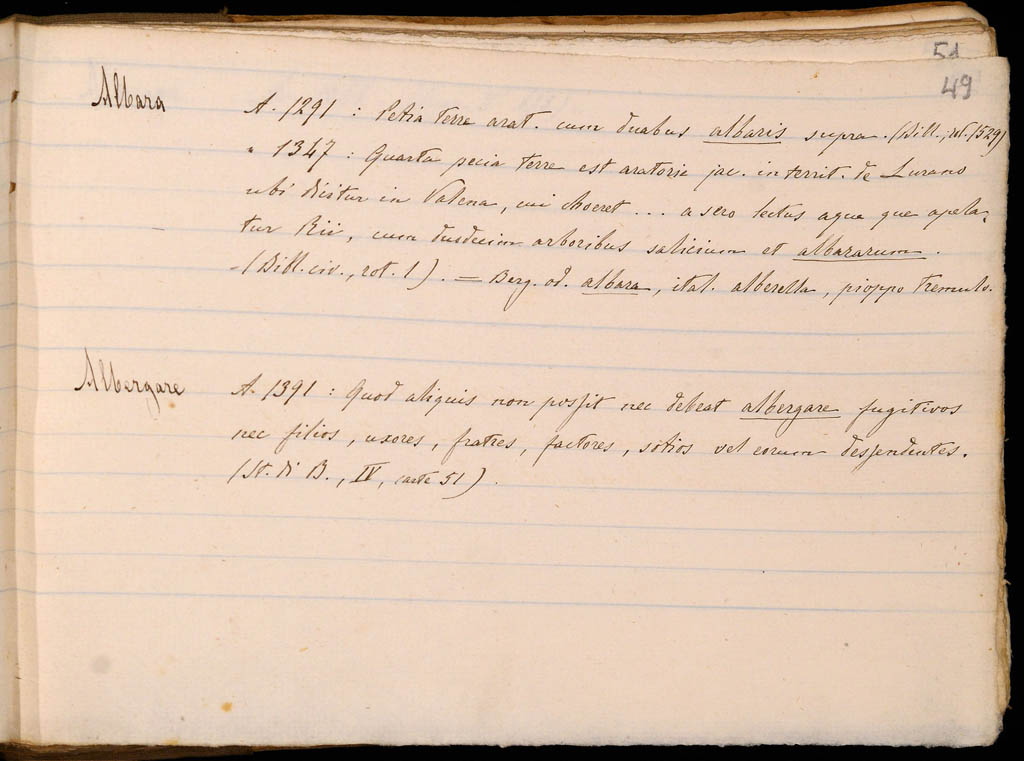 51
49
Albara
A. 1291 : Petia terre arat. cum duabus albaris supra. (Bill., rot. 1529)
" 1347 : Quarta pecia terre est aratorie jac. in territ. de Lurano
ubi dicitur in Valena, cui choeret ... a sero lectus aque que apela-
tur Rii, cum dusdecim arboribus salicium et albararum.
- (Bibl. civ., rot. 1). = Berg. od. albara, ital. alberella, pioppo tremulo.
Albergare
A. 1391 : Quod aliquis non possit nec debeat albergare fugitivos
nec filios, uxores, fratres, factores, sotios vel eorum desendentes.
(St. di B., IV, carte 51).